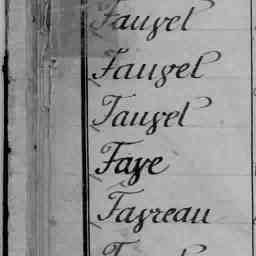 Faugel
Faugel
Faugel
Faye
Fayreau